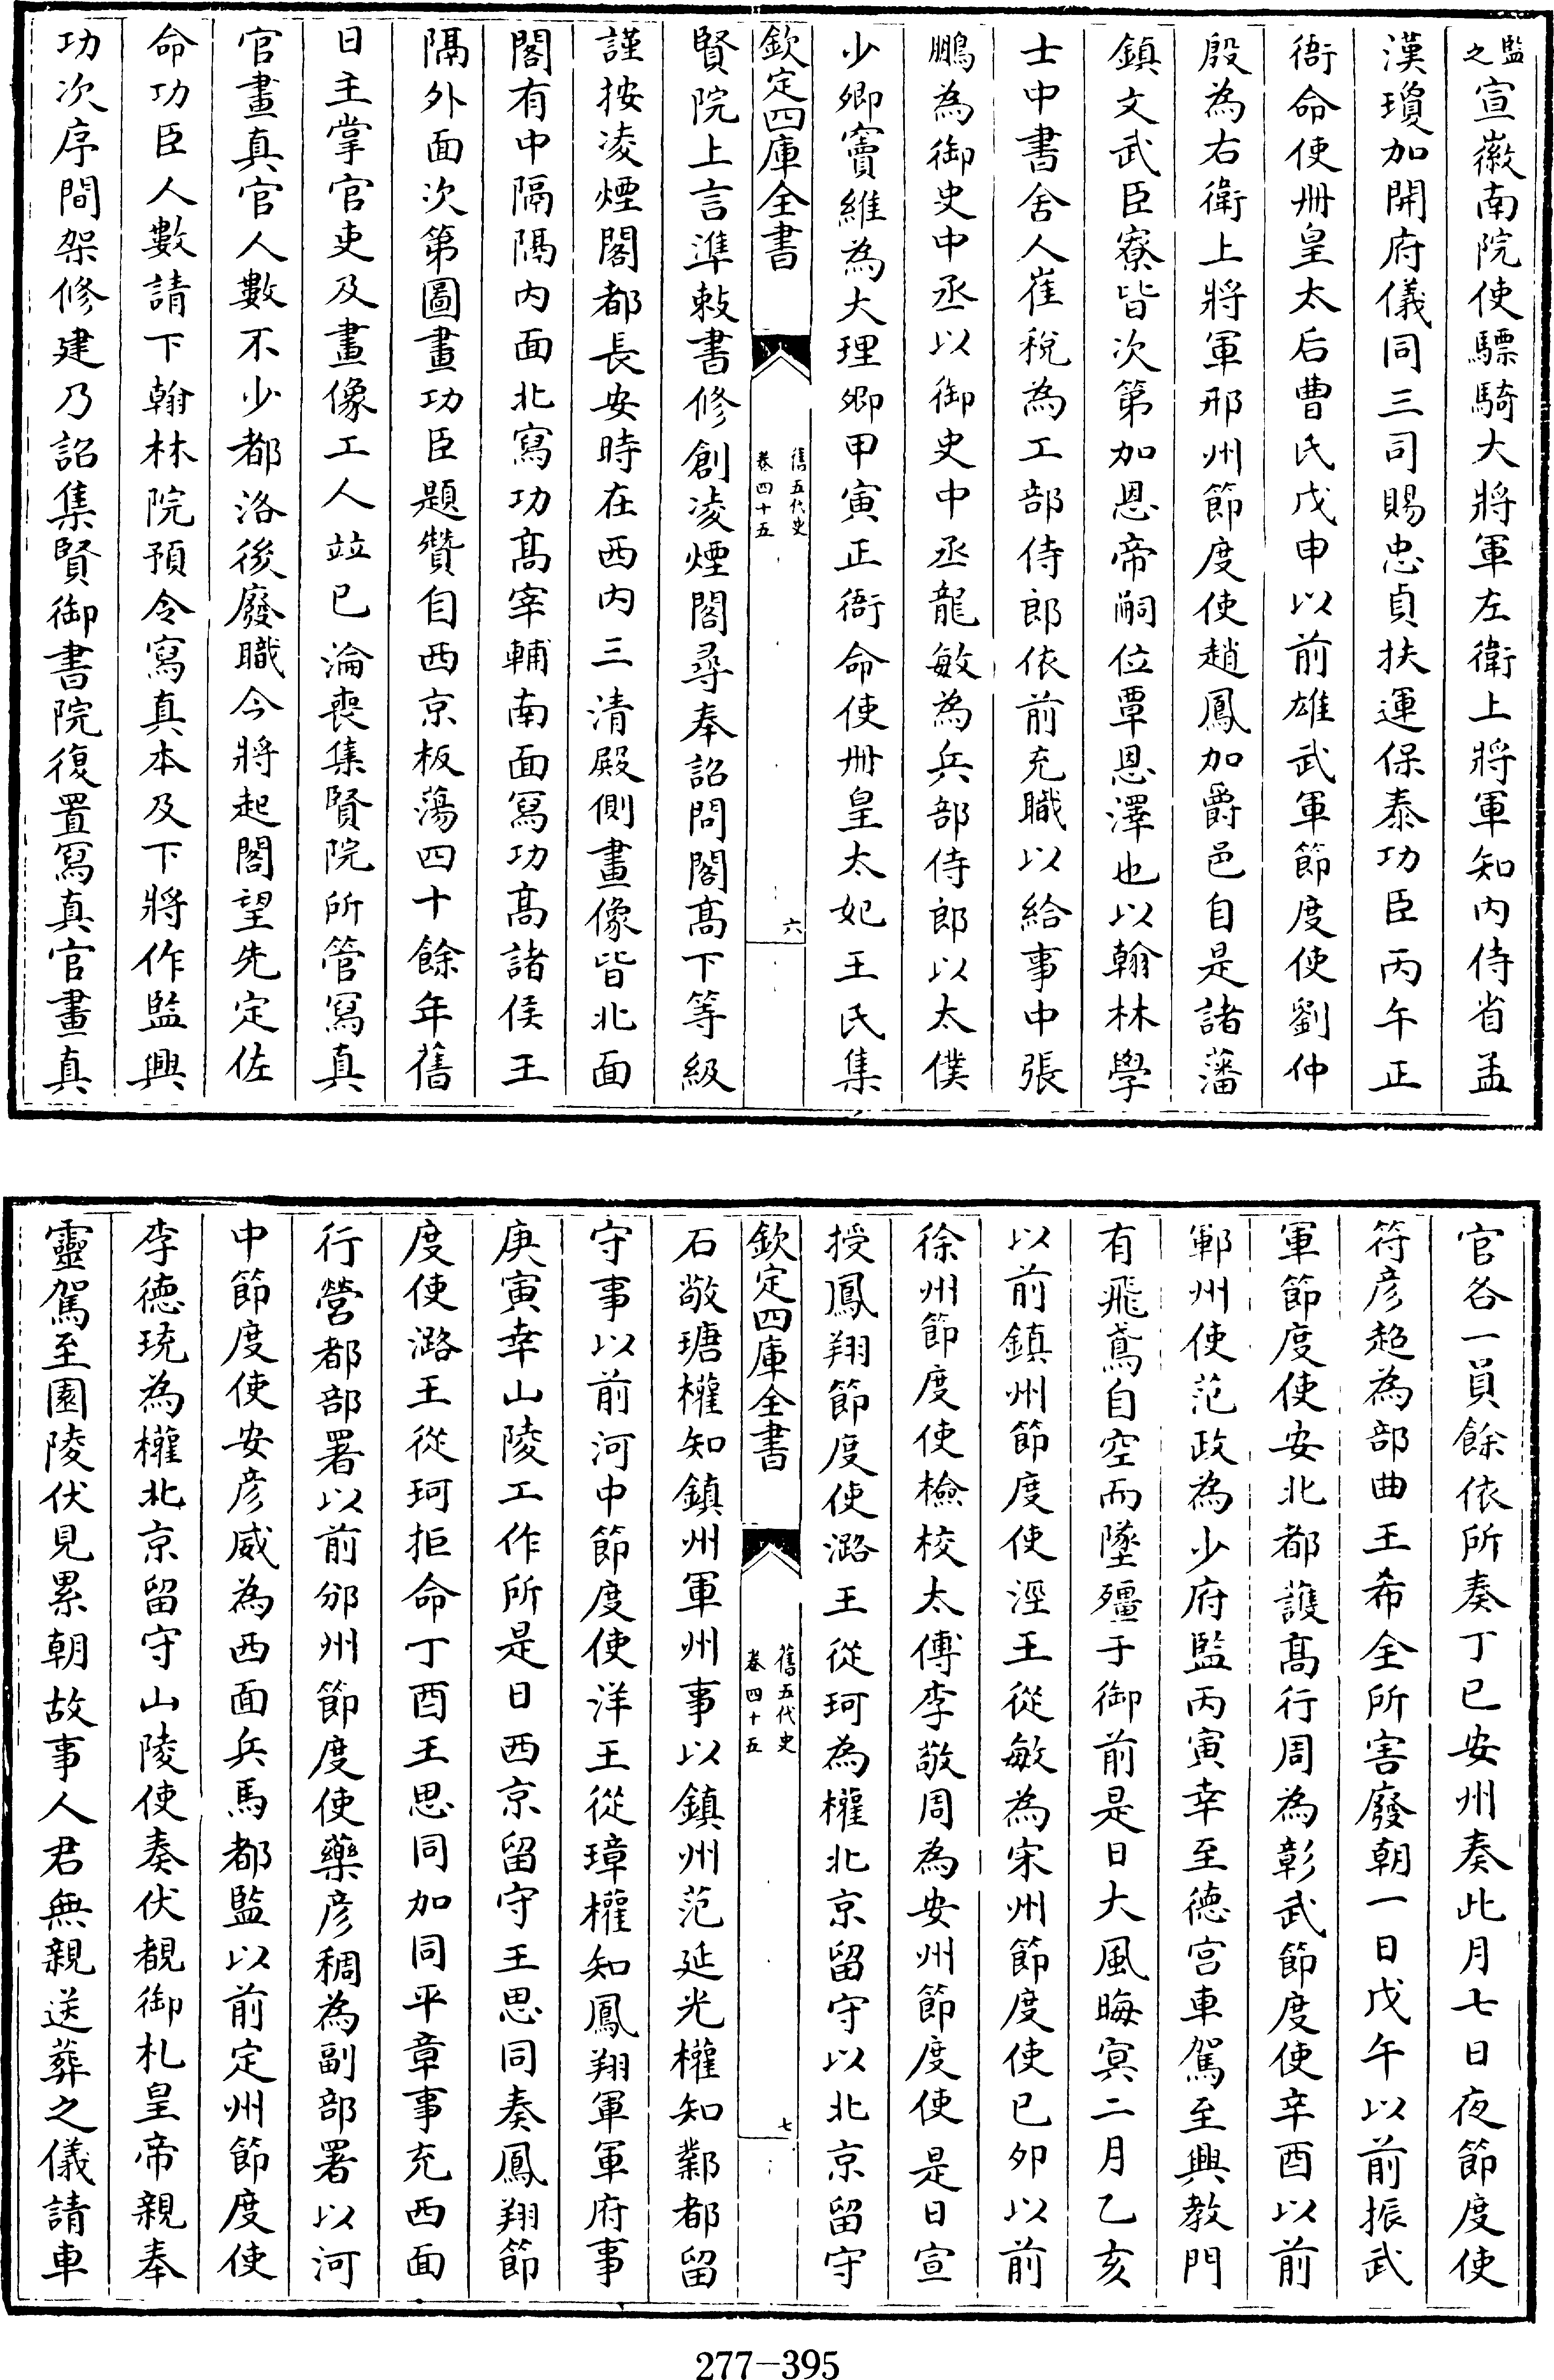 監之宣徽南院使驃騎大將軍左衛上將軍知内侍省孟
漢瓊加開府儀同三司賜忠貞扶運保泰功臣丙午正
衙命使冊皇太后曹氏戊申以前雄武軍節度使劉仲
殷為右衛上將軍邢州節度使趙鳳加爵邑自是諸藩
鎮文武臣寮皆次第加恩帝嗣位覃恩澤也以翰林學
士中書舍人崔稅為工部侍郎依前充職以給事中張
鵬為御史中丞以御史中丞龍敏為兵部侍郎以太僕
少卿竇維為大理卿甲寅正衙命使冊皇太妃王氏集
欽定四庫全書
舊五代史
卷四十五
六
賢院上言準敕書修創凌煙閣尋奉詔問閣髙下等級
謹按凌煙閣都長安時在西内三清殿側畫像皆北面
閣有中隔隔内面北寫功髙宰輔南面寫功髙諸侯王
隔外面次第圖畫功臣題贊自西京板蕩四十餘年舊
日主掌官吏及畫像工人竝已淪喪集賢院所管寫真
官畫真官人數不少都洛後廢職今將起閣望先定佐
命功臣人數請下翰林院預令寫真本及下將作監興
功次序間架修建乃詔集賢御書院復置寫真官畫真
官各一員餘依所奏丁已安州奏此月七日夜節度使
符彦超為部曲王希全所害廢朝一日戊午以前振武
軍節度使安北都護髙行周為彰武節度使辛酉以前
鄆州使范政為少府監丙寅幸至德宫車駕至興教門
有飛鳶自空而墜殭于御前是日大風晦冥二月乙亥
以前鎮州節度使涇王從敏為宋州節度使已卯以前
徐州節度使檢校太傅李敬周為安州節度使是日宣
授鳳翔節度使潞王從珂為權北京留守以北京留守
欽定四庫全書
舊五代史
卷四十五
七
石敬瑭權知鎮州軍州事以鎮州范延光權知鄴都留
守事以前河中節度使洋王從璋權知鳳翔軍軍府事
庚寅幸山陵工作所是日西京留守王思同奏鳳翔節
度使潞王從珂拒命丁酉王思同加同平章事充西面
行營都部署以前邠州節度使藥彦稠為副部署以河
中節度使安彦威為西面兵馬都監以前定州節度使
李德珫為權北京留守山陵使奏伏覩御札皇帝親奉
靈駕至園陵伏見累朝故事人君無親送葬之儀請車
277-395